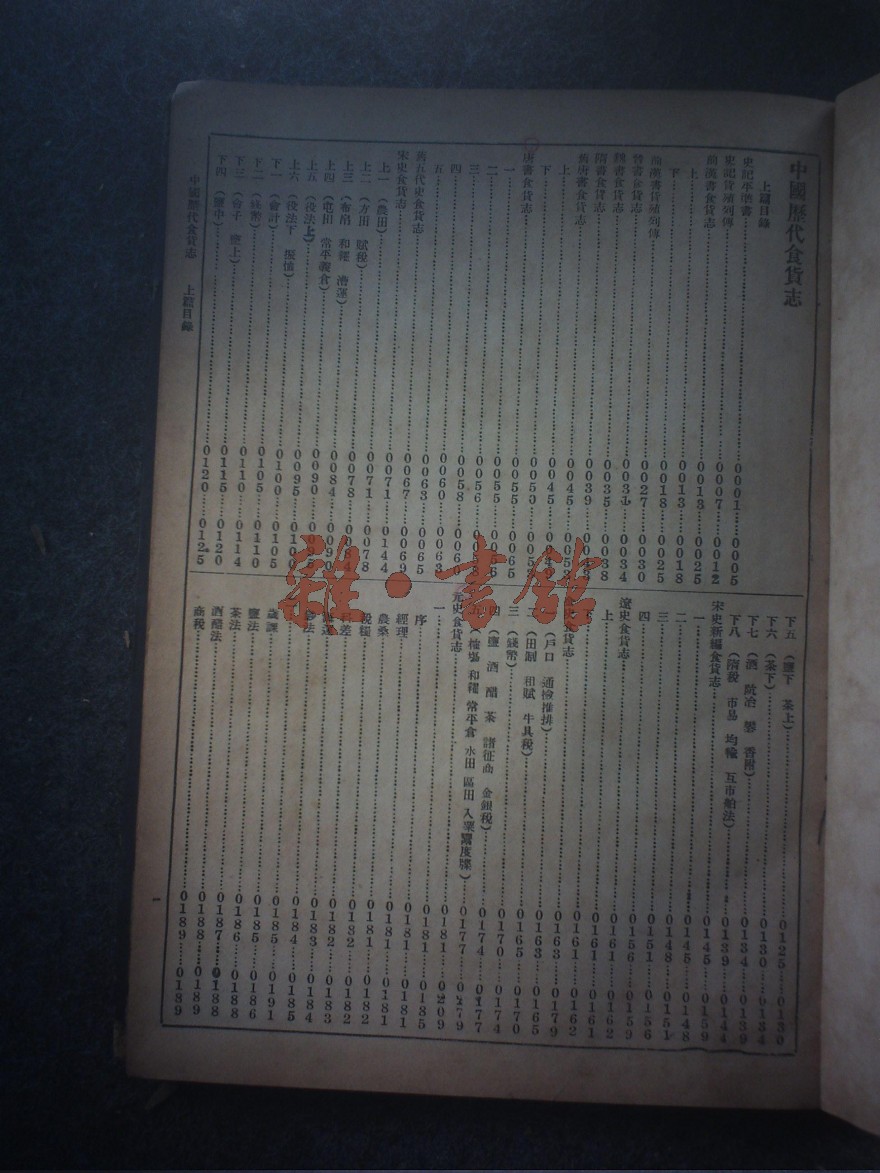 中國歷代食貨志
上篇目錄
史記平準書……0001……0005
史記貨殖列傳……0007……0012
前漢書食貨志……0013……0025
上……0013……0018
下……0018……0025
前漢書貨殖列傳……0027……0030
晉書食貨志……0031……0034
魏書食貨志……0035……0038
隋書食貨志……0039……0043
舊唐書食貨志……0045……0053
上……0045
下……0050
唐書食貨志……0055……0065
一……0055
二……0056
三……0058……0060
四……0060……0063
五……0063……0065
舊五代史食貨志……0067……0069
宋史食貨志……0071……0144
上一(農田)……0071……0078
上二(方田 賦稅)……0078
上三(布帛 和糴 漕運)……0084……0090
上四(屯田 常平義倉)……0090
上五(役法上)……0095……0100
上六(役法下 振恤)……0100……0105
下一(會計)……0105……0110
下二(錢幣)……0110……0114
下三(會子 鹽上)……0115……0120
下四(鹽中)……0120……0125
下五(鹽下 茶上)……0125……0130
下六(茶下)……0130……0134
下七(酒 阬冶 礬 香附)……0134……0139
下八(商稅 市易 均輸 互市舶法)……0139……0144
宋史新編食貨志……0145……0159
一……0145……0148
二……0148……0151
三……0151……0156
四……0156……0159
遼史食貨志……0161……0162
上……0161……0161
下……0161……0162
金史食貨志……0163……0179
一(戶口 通檢推排)……0163……0165
二(田制 租賦 牛具稅)……0165……0170
三(錢幣)……0170……0174
四(鹽 酒 醋 茶 諸征商 金銀稅)……0174……0177
五(榷場 和糴 常平倉 水田 區田 入粟鬻度牒)……0177……0179
元史食貨志……0181……0209
一……0181……0185
序……0181……0181
經理……0181……0181
農桑……0181……0182
稅糧……0182……0182
科差……0182……0183
海運……0183……0184
鈔法……0184……0185
二……0185……0191
歲課……0185……0186
鹽法……0186……0188
茶法……0187……0188
酒醋法……0188……0189
商稅……0189……0189
中國歷代食貨志 上篇目錄
一
雜·書館